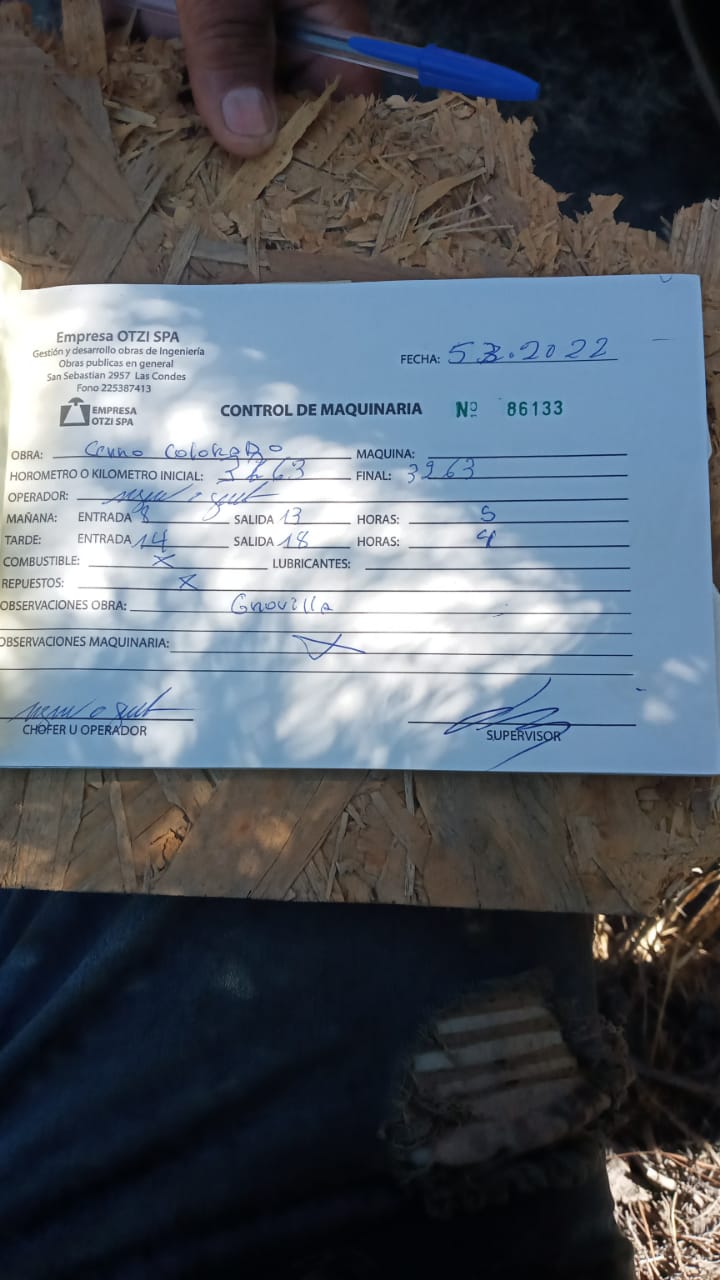 Empresa OTZI SPA
Gestión y desarrollo obras de Ingeniería
Obras publicas en general
San Sebastian 2957 Las Condes
Fono 225387413
EMPRESA
OTZI SPA
FECHA: 5 3.2022
CONTROL DE MAQUINARIA Nº 86133
OBRA: Cerro Colorado MAQUINA:
HOROMETRO O KILOMETRO INICIAL: FINAL: 3263
OPERADOR:
MAÑANA: ENTRADA 8 SALIDA 13 HORAS: 5
TARDE: ENTRADA 14 SALIDA 18 HORAS: 4
COMBUSTIBLE: X LUBRICANTES:
REPUESTOS: X
OBSERVACIONES OBRA: Gravilla
OBSERVACIONES MAQUINARIA:
CHOFER U OPERADOR
SUPERVISOR